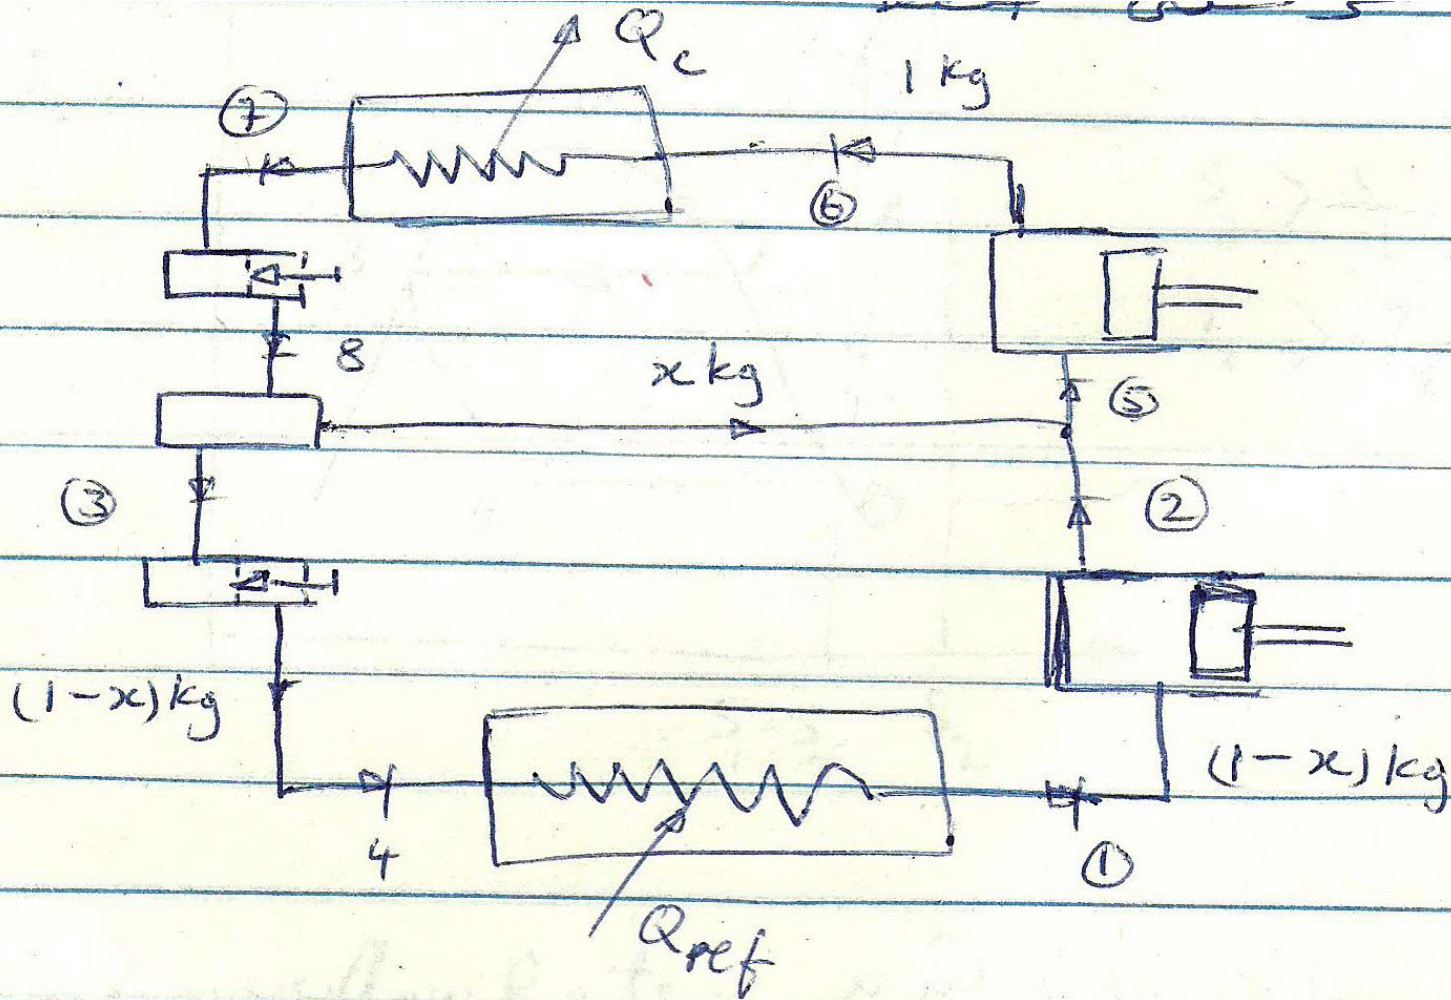 Qc
1 kg
7
6
8
x kg
5
3
2
(1-x) kg
(1-x) kg
4
1
Qref